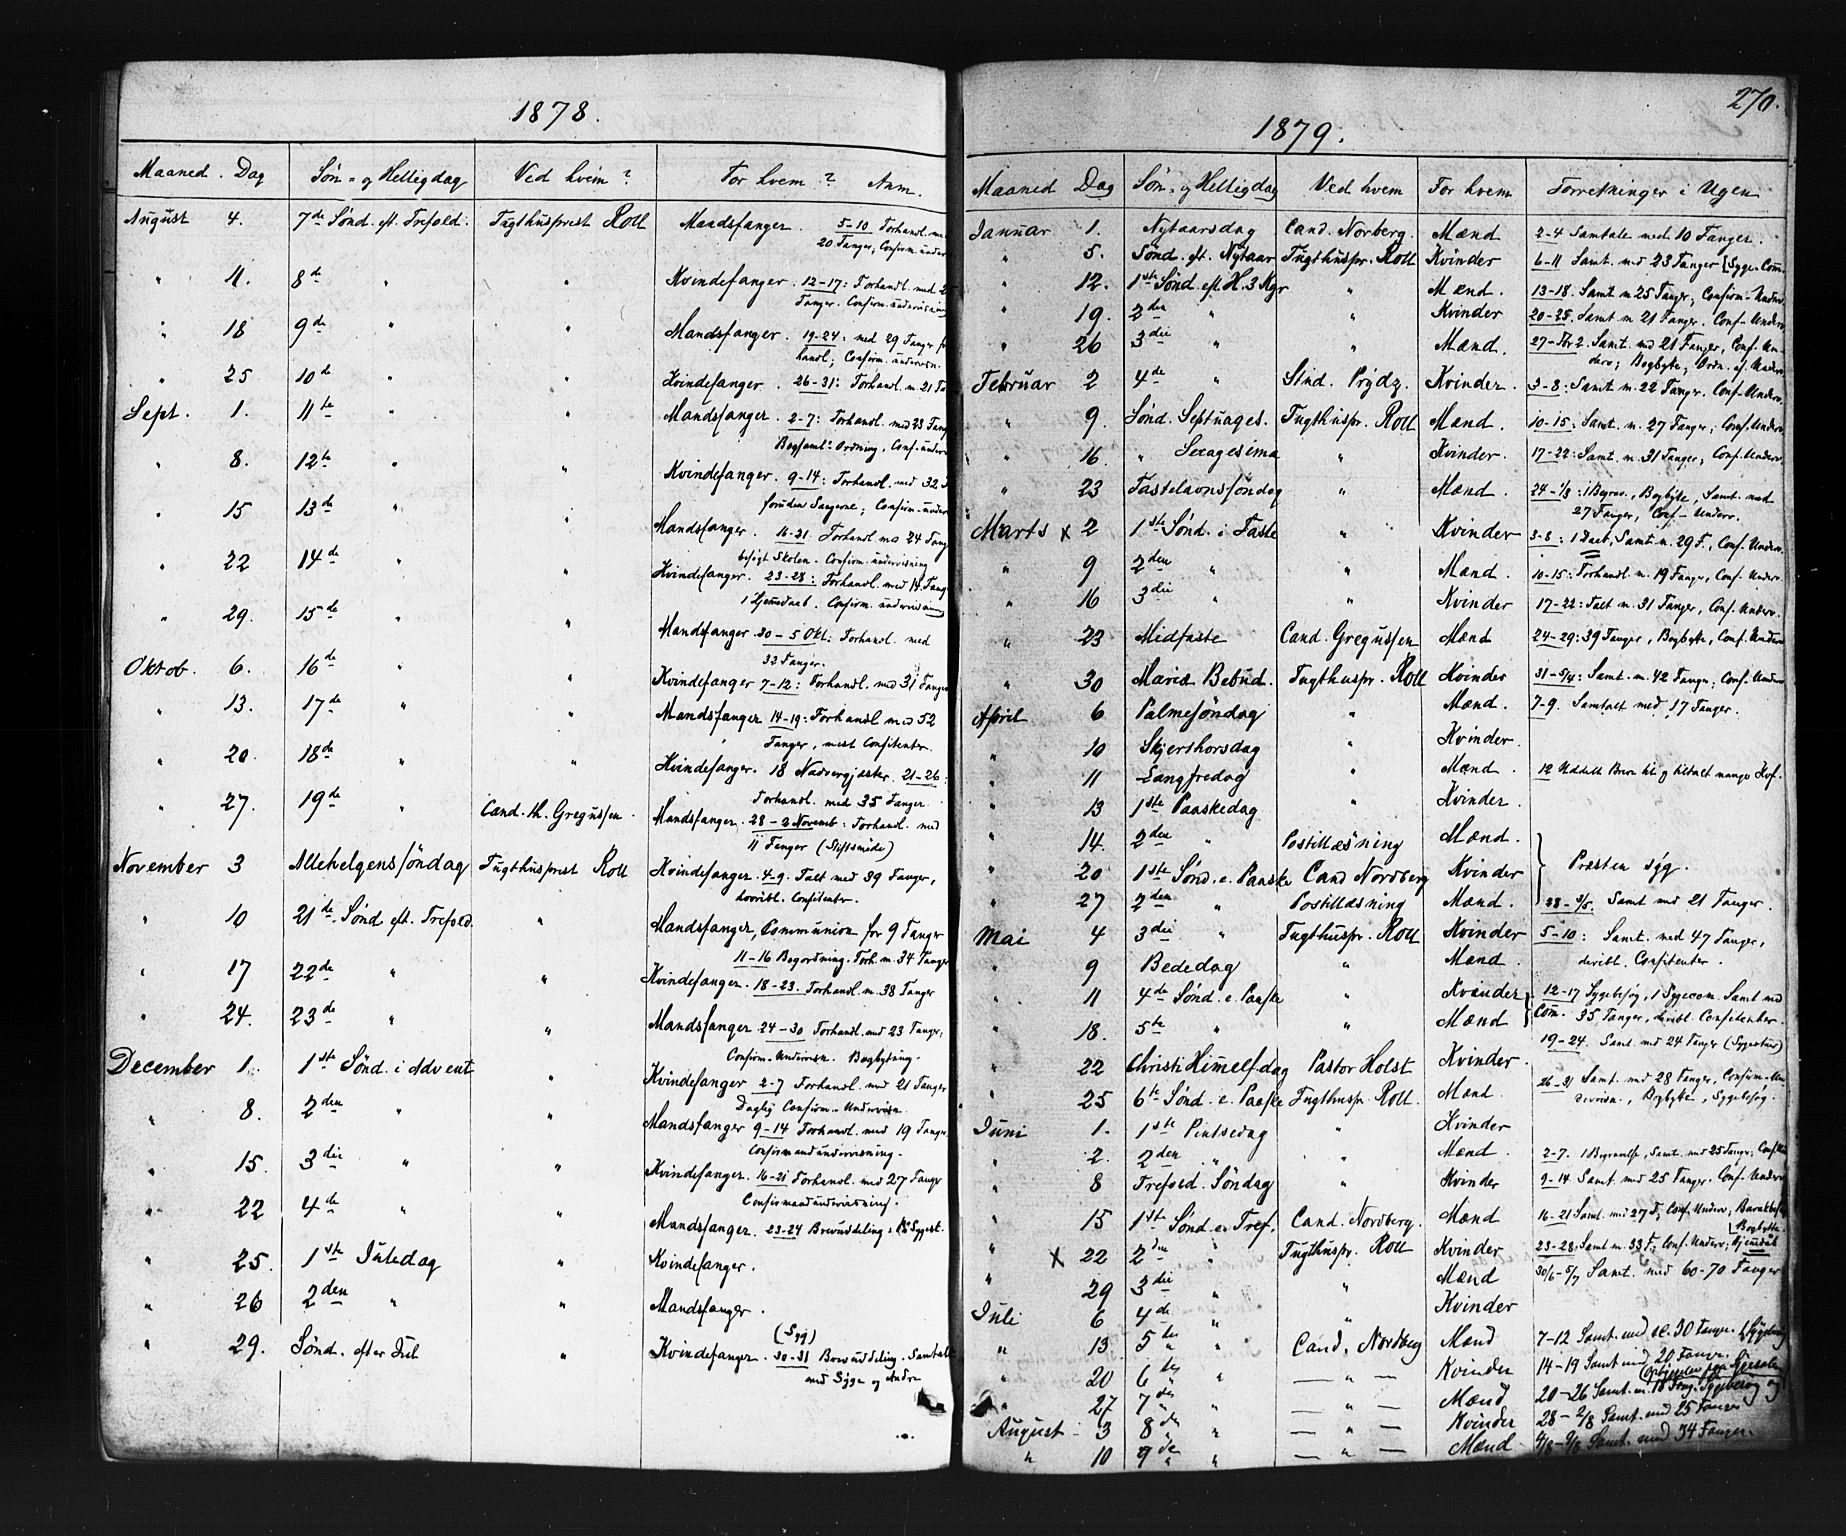 1878.
Maaned. Dag Søn- og Helligdag Ved hvem? For hvem? Anm.
August 4. 7de Sønd. eft. Trefold. Tugthusprest Roll Mandsfanger. 5-10 Forhandl. med
20 Fanger, Confirm. under
" 11. 8de " " Kvindefanger. 12-17: Forhandl. med
Fanger. Confirm. undervisning
" 18 9de " " Mandsfanger. 19-24: med 29 Fanger
handl; Confirm. undervisn.
" 25 10de " " Kvindefanger. 26-31: Forhandl. m. 21 Fa
Sept. 1. 11te " " Mandsfanger. 2-7: Forhandl. med 23 Fang
Bogsaml: Ordning, Conf. under
" 8. 12te " " Kvindefanger. 9-14: Forhandl. med 32
foruden Sangerne; Confirm.-under
" 15 13de " " Mandsfanger. 16-21. Forhandl. m 24 Fang
besøgt Skolen. Confirm. undervisning
" 22 14de " " Kvindefanger. 23-28: Forhandl. med 19 Fang
1 Hjemmedaab. Confirm. undervisning
" 29. 15de " " Mandsfanger 30-5 Okt: Forhandl. med
32 Fanger.
Oktob. 6. 16de " " Kvindefanger 7-12: Forhandl. med 31 Fanger
" 13. 17de " " Mandsfanger 14-19: Forhandl med 52
Fanger, mest Confitenter.
" 20. 18de " " Kvindefanger. 18 Nadvergjæster. 21-26:
Forhandl. med 35 Fanger
" 27. 19de " Cand. th. Gregussen. Mandsfanger. 28-2 Novemb: Forhandl. med
11 Fanger (Stiftsmøde)
November 3 Allehelgenssøndag Tugthusprest Roll Kvindefanger. 4-9. Talt med 39 Fanger,
hvoribl. Confitenter.
" 10 21de Sønd. eft. Trefold. " Mandsfanger, Communion for 9 Fanger
11-16 Bogordning. Forh. m. 34 Fanger
" 17 22de " " Kvindefanger. 18-23. Forhandl. m. 38 Fanger
" 24. 23de " " Mandsfanger 24-30 Forhandl. med 23 Fanger;
Confirm-Undervisn. Bogbytning.
December 1. 1ste Sønd. i Advent " Kvindefanger 2-7 Forhandl. med 21 Fanger
Daglig Confirm.-Undervisn.
" 8. 2den " " Mandsfanger 9-14 Forhandl. med 19 Fanger
Confirmandundervisning.
" 15. 3die " " Kvindefanger. 16-21 Forhandl. med 27 Fanger
Confirmandundervisning.
" 22 4de " " Mandsfanger. 23-24 Brevuddeling,
" 25. 1ste Juledag " Kvindefanger.
" 26 2den " " Mandsfanger.
" 29. Sønd. efter Jul " Kvindefanger. (Syg) 30-31 Brevuddeling. Samtale
med Syge og Andre
270.
1879.
Maaned Dag Søn- og Helligdag Ved hvem For hvem Forretninger i Ugen
Januar 1. Nytaarsdag Cand. Norberg. Mænd 2-4 Samtale med 10 Fanger.
" 5. Sønd. eft. Nytaar Tugthuspr. Roll Kvinder 6-11 Samt. med 23 Fanger [Syge-Com.
" 12. 1ste Sønd. eft H. 3 Kgr " Mænd. 13-18. Samt m 25 Fanger; Confirm-Underv.
" 19. 2den " " Kvinder 20-25. Samt. m 21 Fanger. Conf-Underv.
" 26 3die " " Mænd. 27-Febr 2. Samt. med 21 Fanger, Conf-Un-
derv; Bogbytte; Ordn. af
Februar 2 4de " Stud. Prydz. Kvinder. 3-8: Samt m. 22 Fanger. Conf-Underv.
" 9. Sønd. Septuages. Tugthuspr. Roll Mænd. 10-15: Samt. m. 27 Fanger; Conf-Underv.
" 16. " Sexagesima " Kvinder. 17-22: Samt. m. 31 Fanger; Conf. Underv.
" 23 Fastelavnssøndag " Mænd. 24-1/3: 1 Begrav., Bogbytte, Samt. med
27 Fanger, Conf-Underv.
Marts x 2 1ste Sønd. i Faste " Kvinder 3-8: 1 Daab, Samt m. 29 F., Conf. Underv.
" 9 2den " " Mænd. 10-15: Forhandl m. 19 Fanger, Conf. Underv.
" 16 3die " " Kvinder 17-22: Talt m. 31 Fanger, Conf. Underv.
" 23 Midfaste Cand. Gregussen Mænd 24-29: 39 Fanger, Bogbytte, Conf. Underv
" 30 Mariæ Bebud. Tugthuspr. Roll Kvinder 31-5/4: Samt. m. 42 Fanger; Conf-Underv
April 6 Palmesøndag " Mænd. 7-9. Samtalt med 17 Fanger.
" 10 Skjerthorsdag " Kvinder.
" 11 Langfredag " Mænd. 12 Uddelt Breve til og tiltalt mange Kvf.
" 13 1ste Paaskedag " Kvinder.
" 14. 2den " Postillæsning Mænd.
" 20 1ste Sønd. e. Paaske Cand Nordberg Kvinder Præsten syg.
" 27 2den " Postillæsning Mænd. 28-3/5. Samt med 21 Fanger.
Mai 4 3die " Tugthuspr. Roll Kvinder 5-10: Samt. med 47 Fanger,
" 9 Bededag " Mænd. deribl. Confitenter.
" 11 4de Sønd. e. Paaske " Kvinder 12-17 Sygebesøg, 1 Sygecom. Samt med
" 18. 5te " " Mænd Com. 35 Fanger, deribl. Confitenter.
19-24. Samt. med 24 Fanger
" 22 Christi Himmelf.dag Pastor Holst Kvinder.
" 25 6te Sønd. e. Paaske Tugthuspr. Roll. Mænd. 26-31 Samt. med 28 Fanger, Confirm-Un-
dervisn., Bogbytte, Sygebesøg.
Juni 1. 1ste Pintsedag " Kvinder
" 2. 2den " " Mænd. 2-7. 1 Begravelse, Samt. med 25 Fanger,
" 8 Trefold. Søndag " Kvinder 9-14 Samt. med 25 Fanger, Conf. Underv
" 15 1ste Sønd. e. Tref. Cand. Nordberg. Mænd 16-21 Samt. med 27 F; Conf. Underv;
Bogbytte.
" x 22 2den " Tugthuspr. Roll Kvinder 23-28: Samt m. 33 F; Conf. Underv; Hjemdåb
" 29 3die " " Mænd 30/6-5/7 Samt. med 60-70 Fanger
Juli 6 4de " " Kvinder
" 13 5te " Cand. Nordberg Mænd 7-12 Samt. med 30 Fanger.
" 20 6te " — " — Kvinder 14-19 Samt med 20 Fanger.
" 27 7de " — " — Mænd 20-26 Samt. m. 18 Fang.
August 3 8de " — " — Kvinder 28-2/8 Samt. med 25 Fanger
" 10 9de " — " — Mænd 4/8-9/8 Samt. med 34 Fanger.